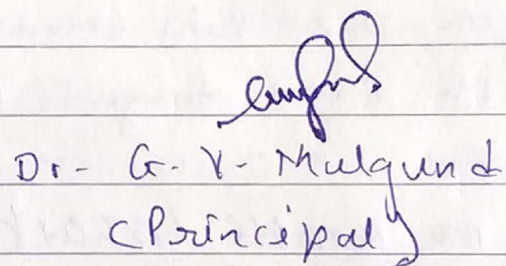 Dr- G- V- Mulgund
(Principal)